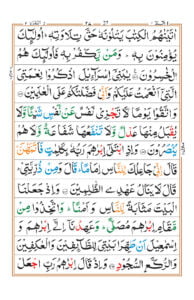 اٰتَيْنٰهُمُ الْكِتٰبَ يَتْلُوْنَهٗ حَقَّ تِلَاوَتِهٖ ؕ اُولٰٓئِكَ
يُؤْمِنُوْنَ بِهٖ ؕ وَمَنْ يَّكْفُرْ بِهٖ فَاُولٰٓئِكَ هُمُ
الْخٰسِرُوْنَ يٰبَنِيْٓ اِسْرَآءِيْلَ اذْكُرُوْا نِعْمَتِيَ
الَّتِيْٓ اَنْعَمْتُ عَلَيْكُمْ وَاَنِّيْ فَضَّلْتُكُمْ عَلَى الْعٰلَمِيْنَ
وَاتَّقُوْا يَوْمًا لَّا تَجْزِيْ نَفْسٌ عَنْ نَّفْسٍ شَيْـًٔا وَّلَا
يُقْبَلُ مِنْهَا عَدْلٌ وَّلَا تَنْفَعُهَا شَفَاعَةٌ وَّلَا هُمْ
يُنْصَرُوْنَ وَاِذِ ابْتَلٰٓى اِبْرٰهٖمَ رَبُّهٗ بِكَلِمٰتٍ فَاَتَمَّهُنَّ ؕ
قَالَ اِنِّيْ جَاعِلُكَ لِلنَّاسِ اِمَامًا ؕ قَالَ وَمِنْ ذُرِّيَّتِيْ ؕ
قَالَ لَا يَنَالُ عَهْدِي الظّٰلِمِيْنَ وَاِذْ جَعَلْنَا
الْبَيْتَ مَثَابَةً لِّلنَّاسِ وَاَمْنًا ؕ وَاتَّخِذُوْا مِنْ
مَّقَامِ اِبْرٰهٖمَ مُصَلًّى ؕ وَعَهِدْنَآ اِلٰٓى اِبْرٰهٖمَ وَ
اِسْمٰعِيْلَ اَنْ طَهِّرَا بَيْتِيَ لِلطَّآئِفِيْنَ وَالْعٰكِفِيْنَ
وَالرُّكَّعِ السُّجُوْدِ وَاِذْ قَالَ اِبْرٰهٖمُ رَبِّ اجْعَلْ